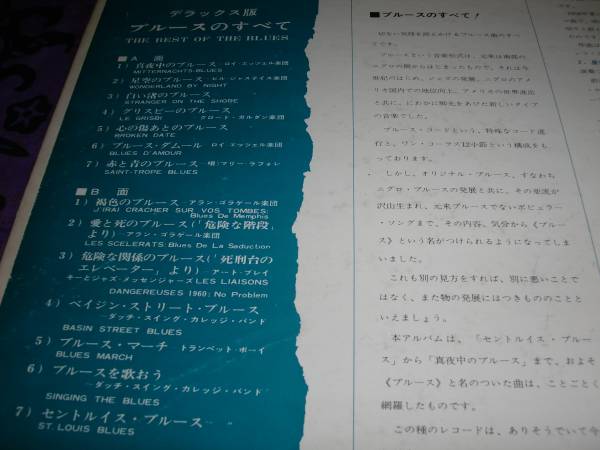 デラックス版
ブルースのすべて
THE BEST OF THE BLUES
■A 面
1）真夜中のブルース－ロイ・エッツェル楽団
MITTERNACHTS-BLUES
2）星空のブルース－ビル・ジャスティス楽団
WONDERLAND BY NIGHT
3）白い渚のブルース
STRANGER ON THE SHORE
4）グリスビーのブルース
LE GRISBI クロート・ガルダン楽団
5）心の傷あとのブルース
BROKEN DATE
6）ブルース・ダムール ロイ エッツェル楽団
BLUES D'AMOUR
7）赤と青のブルース －唄：マリー・ラフォレ
SAINT-TROPE BLUES
■B 面
1）褐色のブルース－アラン・ゴラゲール楽団
J'IRAI CRACHER SUR VOS TOMBES:
Blues De Memphis
2）愛と死のブルース(「危険な階段」
より)－アラン・ゴラゲール楽団
LES SCELERATS: Blues De La Seduction
3）危険な関係のブルース(「死刑台の
エレベーター」より)－アート・ブレイ
キーとジャズ・メッセンジャーズ LES LIAISONS
DANGEREUSES 1960: No Problem
4）ベイジン・ストリート・ブルース
－ダッチ・スイング・カレッジ・バンド
BASIN STREET BLUES
5）ブルース・マーチ トランペット・ボーイ
BLUES MARCH
6）ブルースを歌おう
－ダッチ・スイング・カレッジ・バンド
SINGING THE BLUES
7）セントルイス・ブルース－
ST. LOUIS BLUES
■ブルースのすべて！
切ない気持を訴えかけるブルース曲のすべ
てです。
ブルースという音楽形式は、元来は南部の
ニグロの間からはじまったもので、それは今
世紀のはじめ、ジャズの発展、ニグロのアメ
リカ国内での地位向上、アメリカの世界進出
と共に、にわかに脚光をあびた新しいタイプ
の音楽でした。
ブルース・コードという、特殊なコード進
行と、ワン・コーラス12小節という構成をも
っております。
しかし、オリジナル・ブルース、すなわち
ニグロ・ブルースの発展と共に、その亜流が
沢山生まれ、元来ブルースでないポピュラー
・ソングまで、その内容、気分から《ブルー
ス》という名がつけられるようになってしま
いました。
これも別の見方をすれば、別に悪いことで
はなく、また物の発展にはつきもののことと
いえましょう。
本アルバムは、「セントルイス・ブルー
ス」から「真夜中のブルース」まで、およそ
《ブルース》と名のついた曲は、ことごとく
網羅したものです。
この種のレコードは、ありそうでいて今